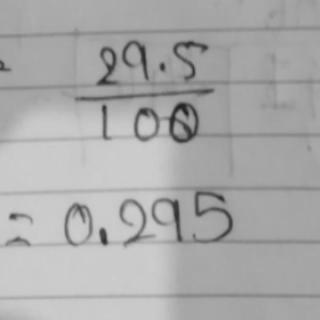 29.5
100
= 0.295